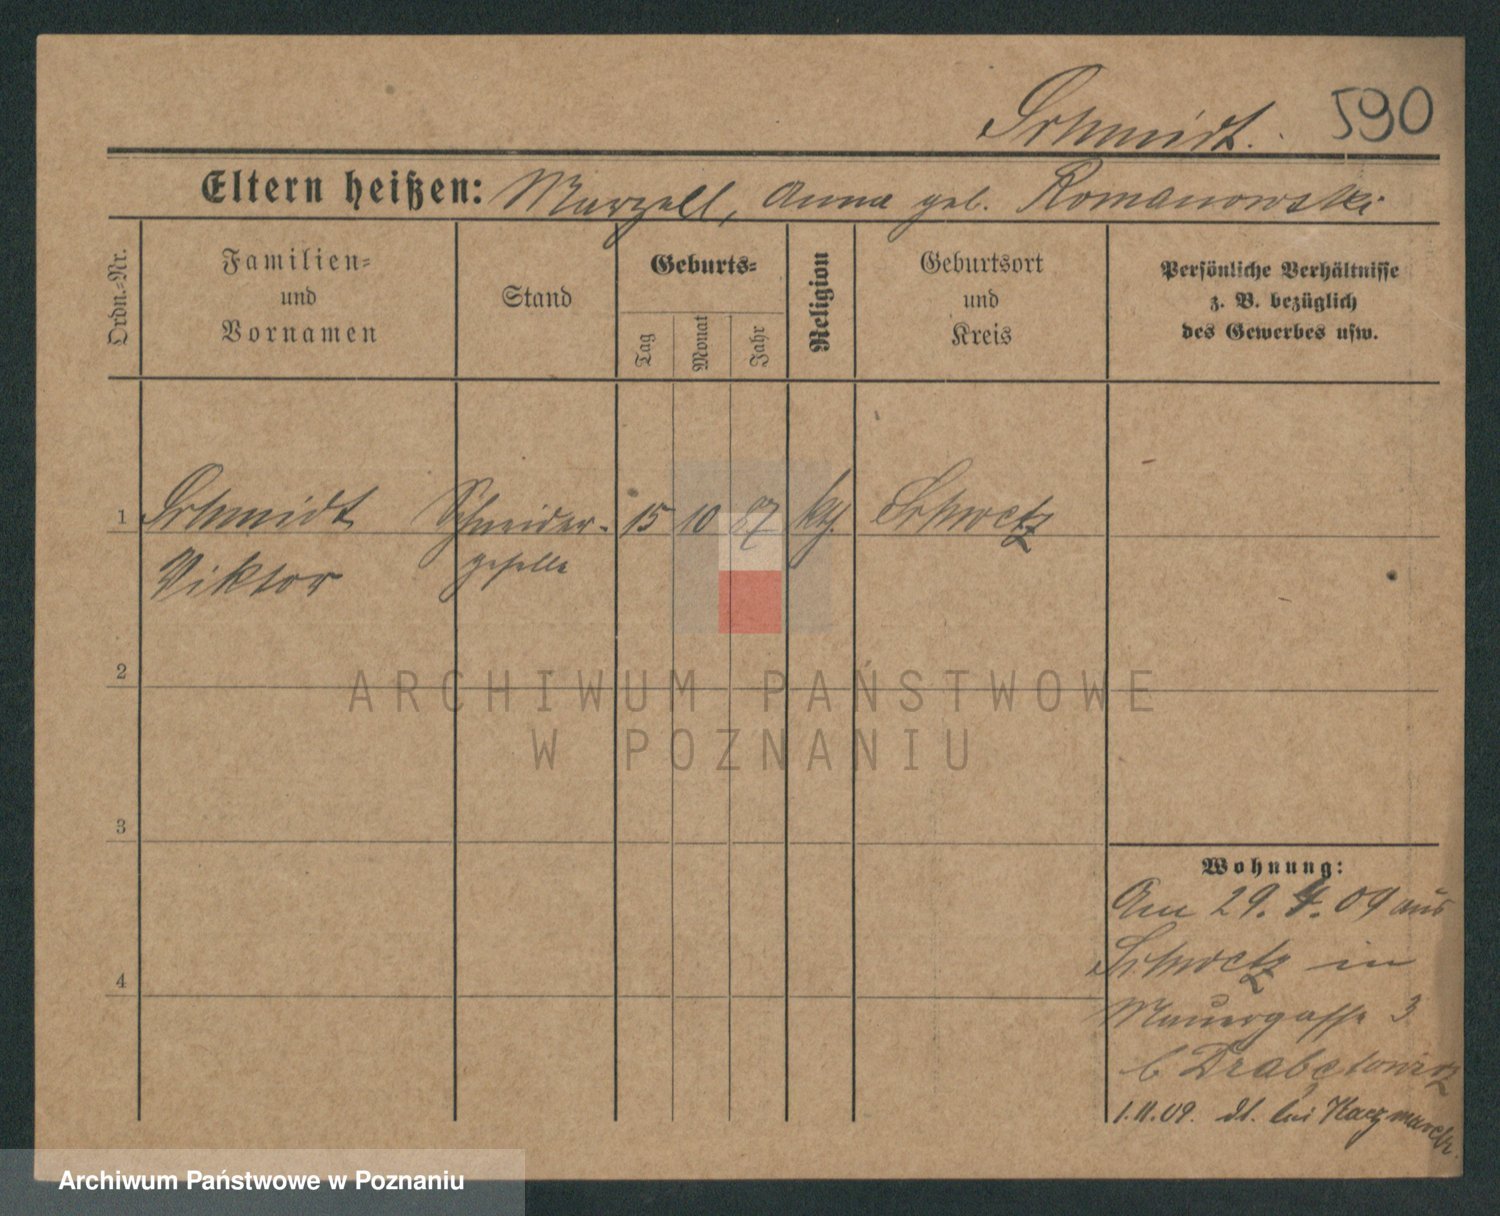 Schmidt. 590
Eltern heißen: Marzell, Anna geb. Romanowski
Ordn.-Nr.
Familien-
und
Vornamen
Stand
Geburts-
Tag
Monat
Jahr
Religion
Geburtsort
und
Kreis
Persönliche Verhältnisse
z. B. bezüglich
des Gewerbes usw.
1 Schmidt Schneider- 15 10 87 kth. Schwetz
Viktor geselle
2
ARCHIWUM PAŃSTWOWE
W POZNANIU
3
Wohnung:
Am 29. 4. 09 aus
Schwetz in
4
Mauergasse 3
b
1.11.09. dt. bei Kaczmarek
Archiwum Państwowe w Poznaniu